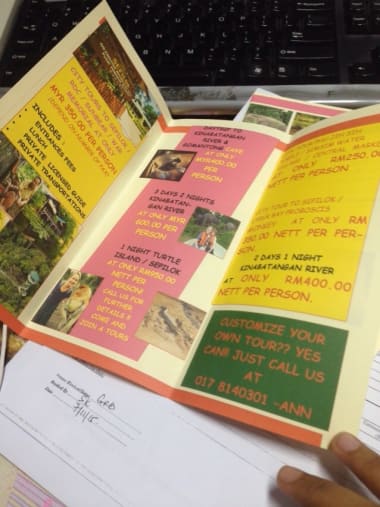 CITY TOURS TO SEPILOK
MYR 350.00 PER PERSON
INCLUDES
ENTRANCE FEES
LUNCH
PRIVATE LICENSED GUIDE
PRIVATE TRANSPORTATIONS
DAYTRIP TO
KINABATANGAN
RIVER &
GOMANTONG CAVE
AT ONLY
MYR400.00
PER
PERSON
3 DAYS 2 NIGHTS
KINABATAN-
GAN RIVER
AT ONLY MYR
600.00 PER
PERSON
1 NIGHT TURTLE
ISLAND / SEPILOK
AT ONLY RM950.00
NETT PER
PERSON
CALL US FOR
FURTHER
DETAILS &
COME AND
JOIN 4 TOURS
WATER
CENTRAL MARKET
ONLY RM250.00
NETT PER PERSON
TOUR TO SEPILOK /
BAY PROBOSCIS
MONKEY AT ONLY RM
350.00 NETT PER PER-
SON.
2 DAYS 1 NIGHT
KINABATANGAN RIVER
AT ONLY RM400.00
NETT PER PERSON.
CUSTOMIZE YOUR
OWN TOUR?? YES
CAN!! JUST CALL US
AT
017 8140301 -ANN